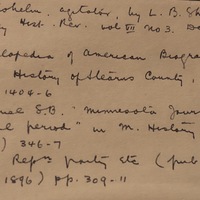 oheln. agitator, by L. B. Sh
y Hist. Rev. vol VII No 3. De
clopedia of American Biogra
History of Stearns County,
1404-6
nual S.B. "Minnesota Jour
al period" in M. History
) 346-7
Rep's party etc (pub
1896) pp. 309-11